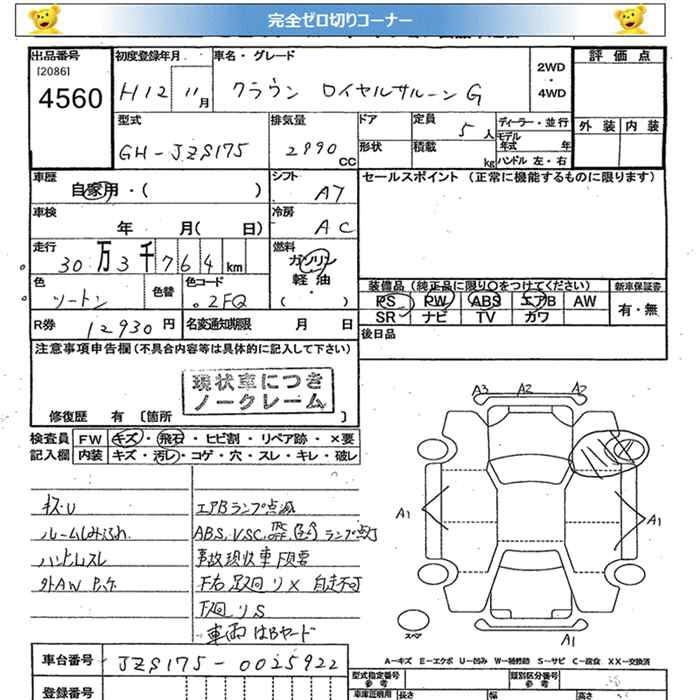 完全ゼロ切りコーナー
出品番号
[2086]
4560
初度登録年月
H12 11月
車名・グレード
クラウン ロイヤルサルーンG
2WD
・
4WD
評価点
外装 内装
型式
GH-JZS175
排気量
2990 CC
ドア
形状
定員
5人
積載
kg
ディーラー・並行
モデル年式 年
ハンドル 左・右
車歴
自家用・( )
シフト
A7
セールスポイント (正常に機能するものに限ります)
車検
年 月( 日)
冷房
AC
走行
30万3千764km
燃料
ガソリン
・
軽油
・
( )
色
ツートン
色替
色コード
2FQ
装備品(純正品に限り○をつけてください)
PS PW ABS エアB AW
SR ナビ TV カワ
新車保証書
有・無
R券
12930円
名変通知期限 月 日
後日品
注意事項申告欄(不具合内容等は具体的に記入して下さい)
現状車につき
ノークレーム
修復歴 有 [箇所 ]
検査員
記入欄
FW キズ・飛石・ヒビ割・リペア跡・×要
内装 キズ・汚レ・コゲ・穴・スレ・キレ・破レ
キズ・U
ルームしみ
ハンドルスレ
外AW
エアBランプ点滅
ABS,VSC, ランプ点灯
事故現状車
自走不可
下廻りS
車両はBヤード
A3 A2 A2
A1
A1
A1
スペア
A-キズ E-エクボ U-凹み W-補修跡 S-サビ C-腐食 XX-交換済
車台番号
JZS175-0025922
登録番号
型式指定番号
参考
類別区分番号
参考
車庫証明用
長さ
幅
高さ